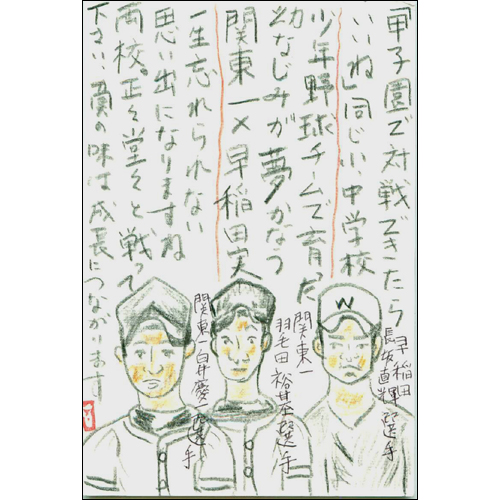 「甲子園で対戦できたら
いいね」同じ小、中学校
少年野球チームで育った
幼なじみが夢かなって
関東一×早稲田実
一生忘れられない
思い出になりますね
両校。正々堂々と戦って
下さい、夏の味は成長につながります
早稲田
長坂直輝選手
関東一
羽毛田裕基選手
関東一臼井慶二選手